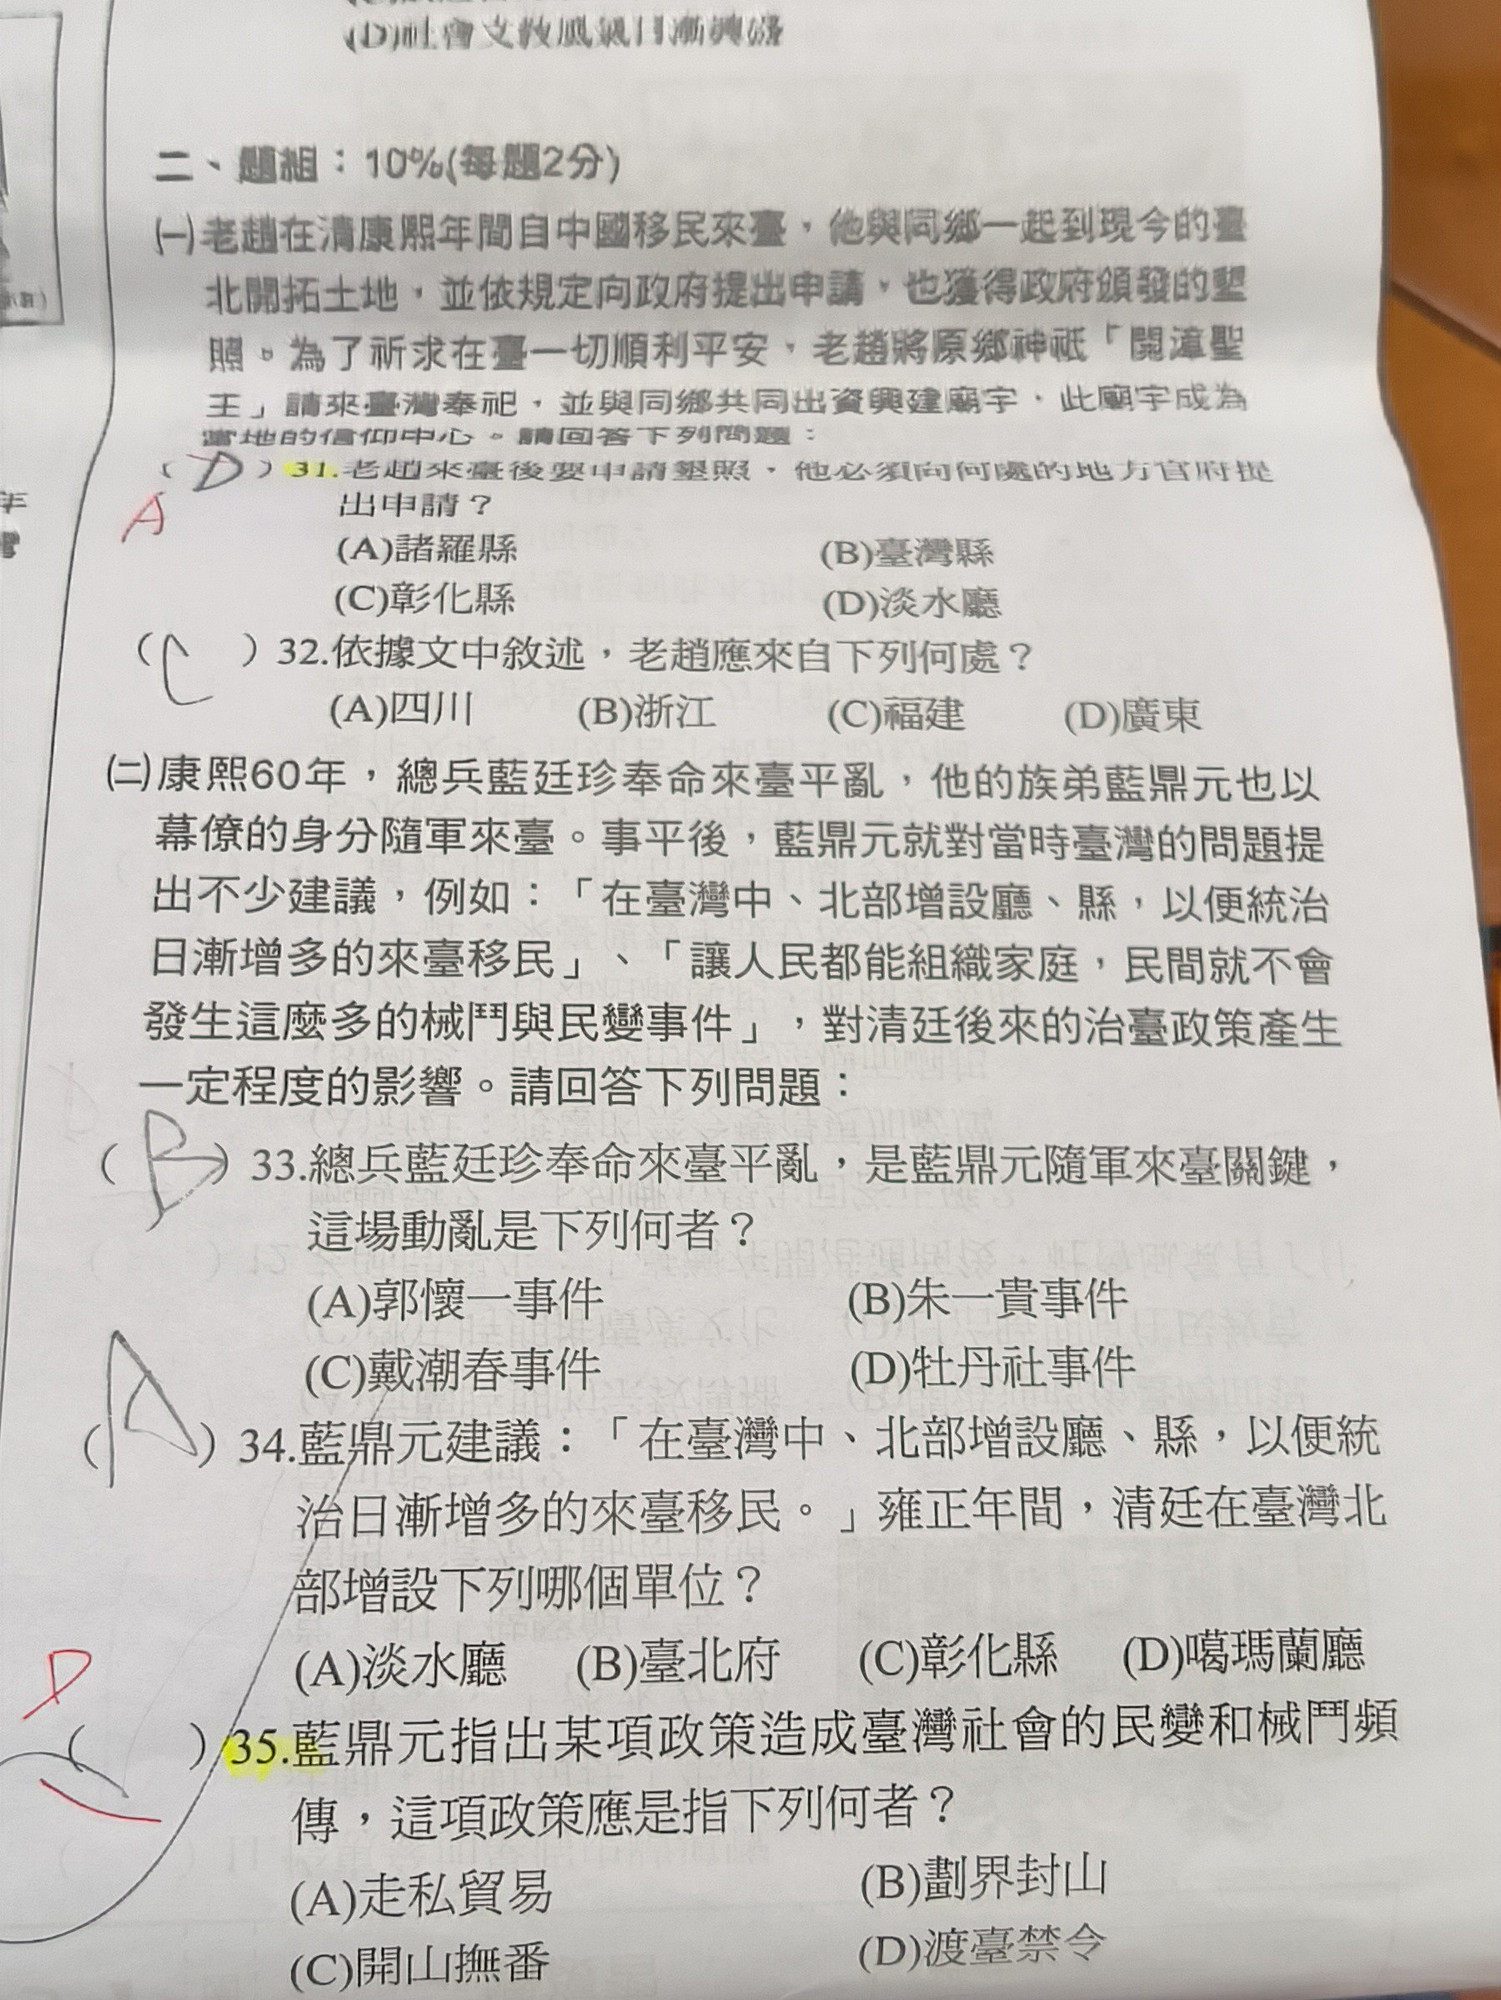 (D)社會文教風氣日漸興盛
二、題組：10%(每題2分)
㈠老趙在清康熙年間自中國移民來臺，他與同鄉一起到現今的臺
北開拓土地，並依規定向政府提出申請，也獲得政府頒發的墾
照。為了祈求在臺一切順利平安，老趙將原鄉神祇「開漳聖
王」請來臺灣奉祀，並與同鄉共同出資興建廟宇，此廟宇成為
當地的信仰中心。請回答下列問題：
( D ) 31.老趙來臺後要申請墾照，他必須向何處的地方官府提
A
出申請？
(A)諸羅縣 (B)臺灣縣
(C)彰化縣 (D)淡水廳
( C ) 32.依據文中敘述，老趙應來自下列何處？
(A)四川 (B)浙江 (C)福建 (D)廣東
㈡康熙60年，總兵藍廷珍奉命來臺平亂，他的族弟藍鼎元也以
幕僚的身分隨軍來臺。事平後，藍鼎元就對當時臺灣的問題提
出不少建議，例如：「在臺灣中、北部增設廳、縣，以便統治
日漸增多的來臺移民」、「讓人民都能組織家庭，民間就不會
發生這麼多的械鬥與民變事件」，對清廷後來的治臺政策產生
一定程度的影響。請回答下列問題：
( B ) 33.總兵藍廷珍奉命來臺平亂，是藍鼎元隨軍來臺關鍵，
這場動亂是下列何者？
(A)郭懷一事件 (B)朱一貴事件
(C)戴潮春事件 (D)牡丹社事件
( A ) 34.藍鼎元建議：「在臺灣中、北部增設廳、縣，以便統
治日漸增多的來臺移民。」雍正年間，清廷在臺灣北
部增設下列哪個單位？
(A)淡水廳 (B)臺北府 (C)彰化縣 (D)噶瑪蘭廳
D
( ) 35.藍鼎元指出某項政策造成臺灣社會的民變和械鬥頻
傳，這項政策應是指下列何者？
(A)走私貿易 (B)劃界封山
(C)開山撫番 (D)渡臺禁令